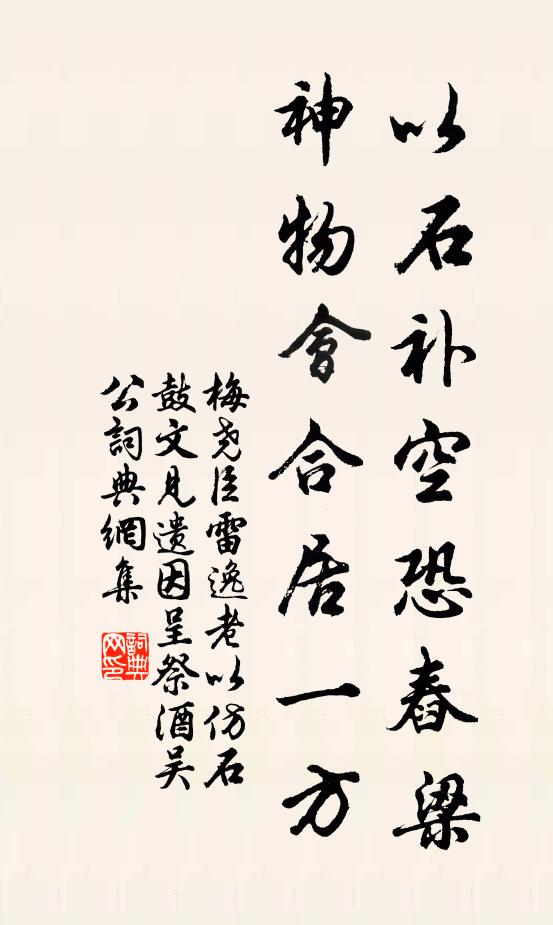 以石补空恐舂梁
神物會合居一方
梅尧臣雷逸老以仿石
鼓文見遗因呈祭酒吴
公詞典網集
詞典
网印